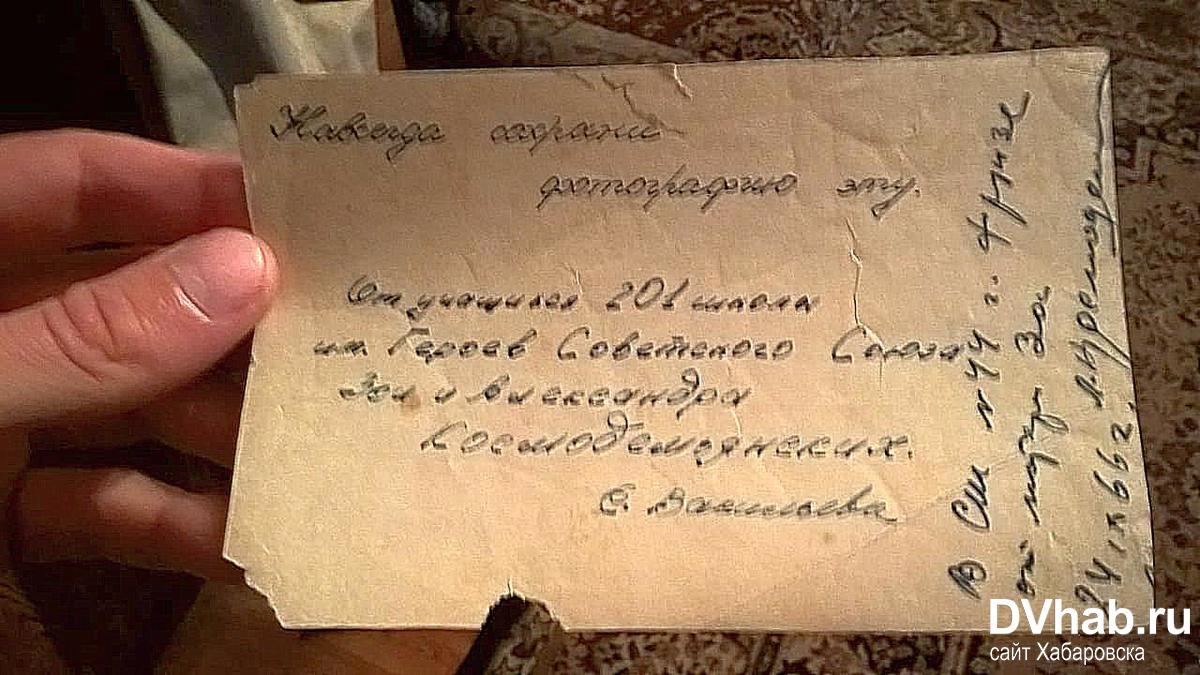 Навсегда сохрани
фотографию эту.
От учащихся 201 школы
им. Героев Советского Союза
Зои и Александра
Космодемьянских.
Е. Васильева
В СШ № 44 г.
от Зои
24 IX 66 г. Л.
DVhab.ru
сайт Хабаровска